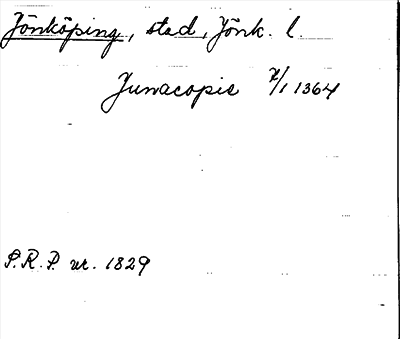 Jönköping, stad, Jönk. l.
Junacopie 7/1 1364
S.R.P. nr. 1829